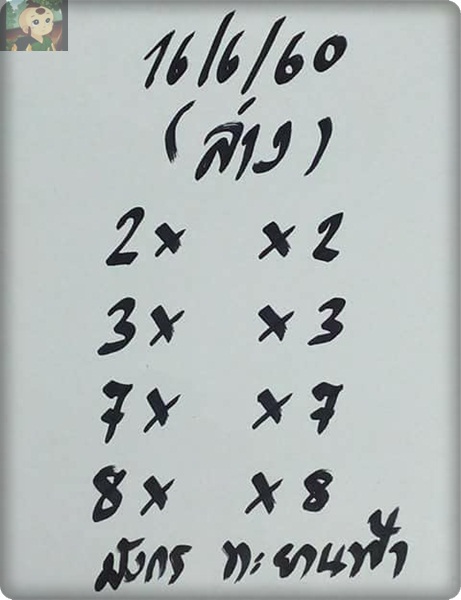 16/6/60
(ล่าง)
2x x2
3x x3
7x x7
8x x8
มังกร ทะยานฟ้า